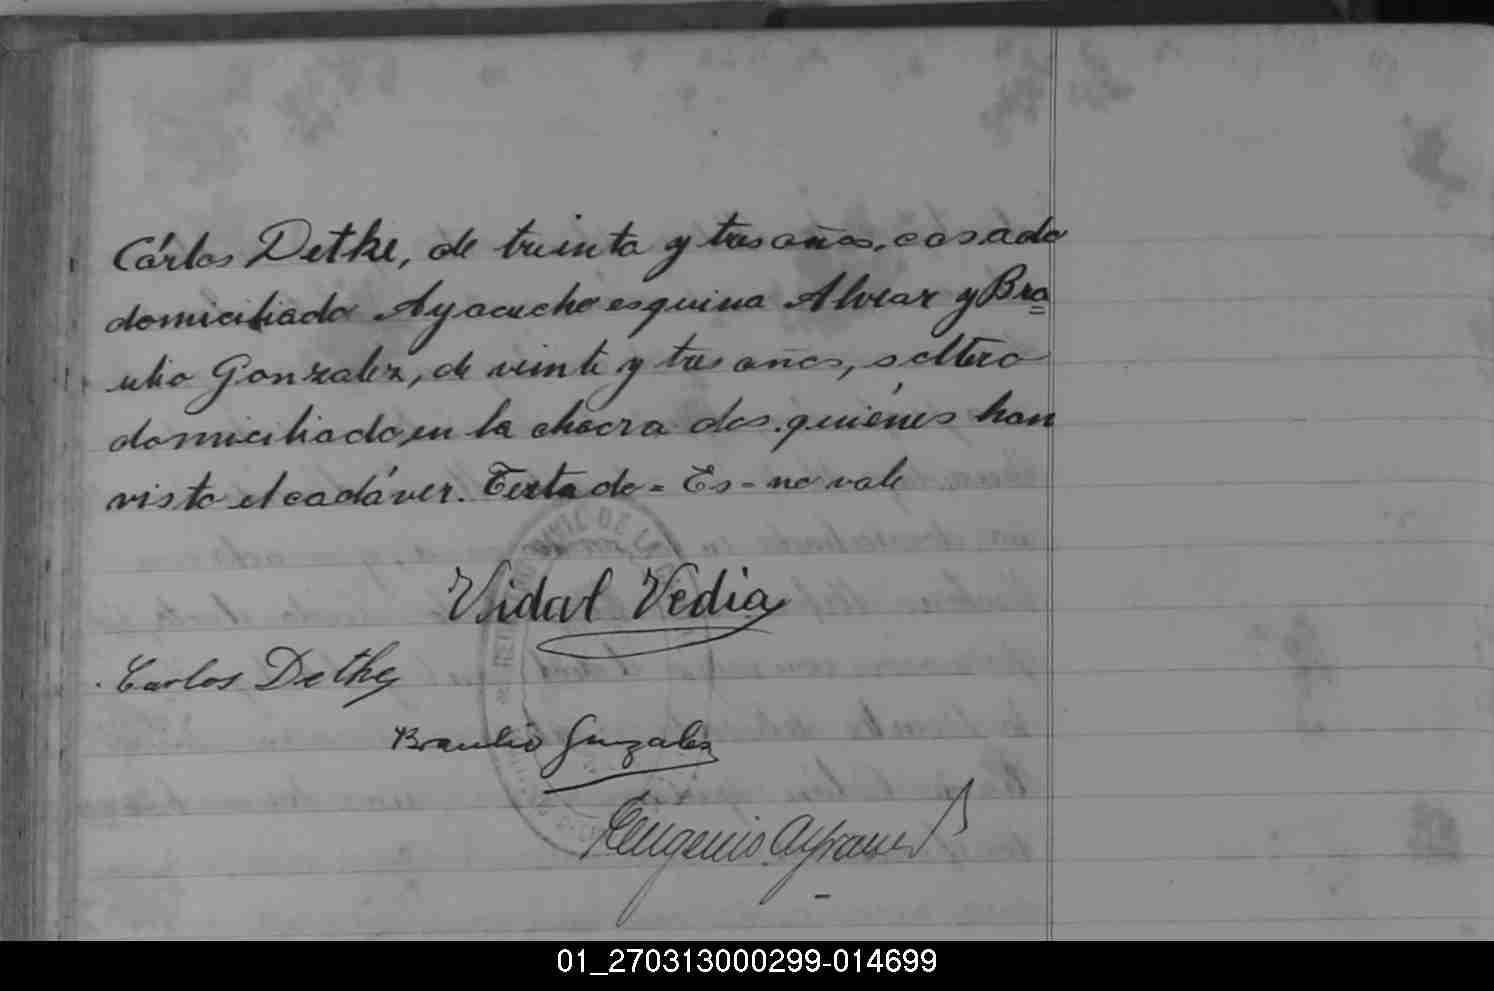 Cárlos Dethe, de treinta y tres años, casado
domiciliado Ayacucho esquina Alvear y Bra
ulio Gonzalez, de veinte y tres años, soltero
domiciliado en la chacra dos, quiénes han
visto el cadáver. Testado = Es = no vale
Vidal Vedia
Carlos Dethe
Braulio Gonzalez
Eugenio
01_270313000299-014699